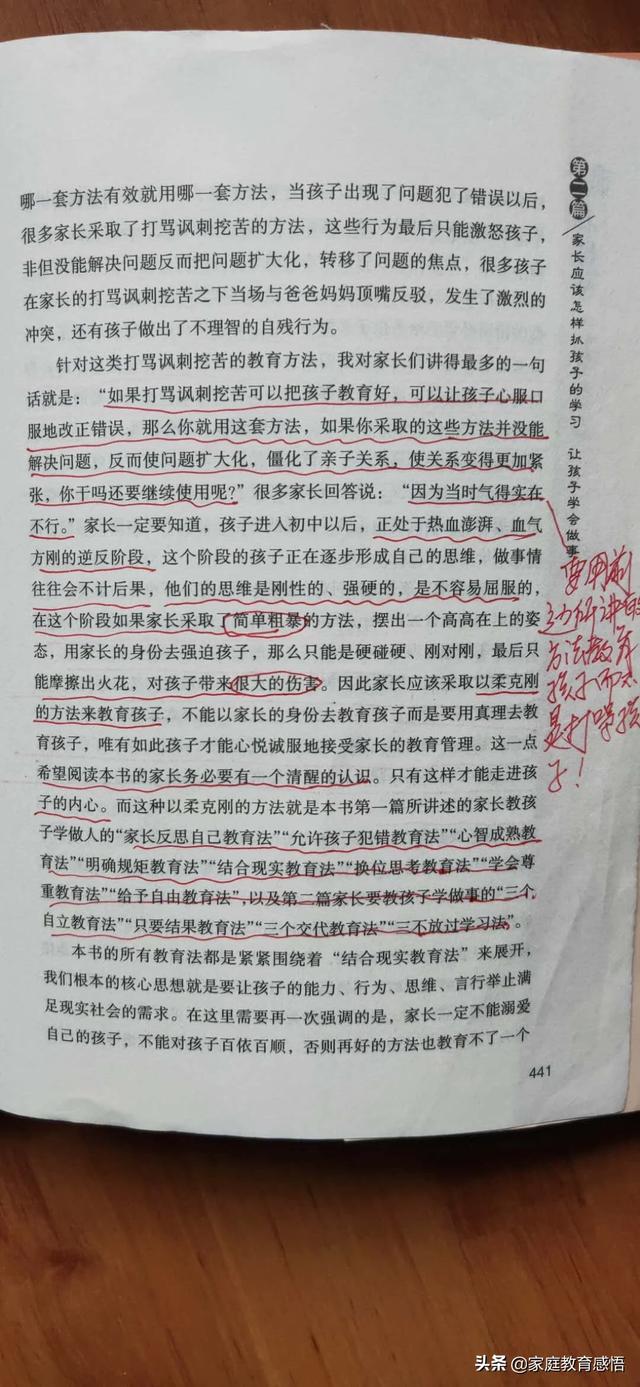 哪一套方法有效就用哪一套方法，当孩子出现了问题犯了错误以后，
很多家长采取了打骂讽刺挖苦的方法，这些行为最后只能激怒孩子，
非但没能解决问题反而把问题扩大化，转移了问题的焦点，很多孩子
在家长的打骂讽刺挖苦之下当场与爸爸妈妈顶嘴反驳，发生了激烈的
冲突，还有孩子做出了不理智的自残行为。
针对这类打骂讽刺挖苦的教育方法，我对家长们讲得最多的一句
话就是：“如果打骂讽刺挖苦可以把孩子教育好，可以让孩子心服口
服地改正错误，那么你就用这套方法，如果你采取的这些方法并没能
解决问题，反而使问题扩大化，僵化了亲子关系，使关系变得更加紧
张，你干吗还要继续使用呢？”很多家长回答说：“因为当时气得实在
不行。”家长一定要知道，孩子进入初中以后，正处于热血澎湃、血气
方刚的逆反阶段，这个阶段的孩子正在逐步形成自己的思维，做事情
往往会不计后果，他们的思维是刚性的、强硬的，是不容易屈服的，
在这个阶段如果家长采取了简单粗暴的方法，摆出一个高高在上的姿
态，用家长的身份去强迫孩子，那么只能是硬碰硬、刚对刚，最后只
能摩擦出火花，对孩子带来很大的伤害。因此家长应该采取以柔克刚
的方法来教育孩子，不能以家长的身份去教育孩子而是要用真理去教
育孩子，唯有如此孩子才能心悦诚服地接受家长的教育管理。这一点
希望阅读本书的家长务必要有一个清醒的认识。只有这样才能走进孩
子的内心。而这种以柔克刚的方法就是本书第一篇所讲述的家长教孩
子学做人的“家长反思自己教育法”“允许孩子犯错教育法”“心智成熟教
育法”“明确规矩教育法”“结合现实教育法”“换位思考教育法”“学会尊
重教育法”“给予自由教育法”，以及第二篇家长要教孩子学做事的“三个
自立教育法”“只要结果教育法”“三个交代教育法”“三不放过学习法”。
本书的所有教育法都是紧紧围绕着“结合现实教育法”来展开，
我们根本的核心思想就是要让孩子的能力、行为、思维、言行举止满
足现实社会的需求。在这里需要再一次强调的是，家长一定不能溺爱
自己的孩子，不能对孩子百依百顺，否则再好的方法也教育不了一个
441
第二篇
家长应该怎样抓孩子的学习 让孩子学会做事
要用前
边所讲
方法教育
孩子而不
是打骂孩
子！
头条 @家庭教育感悟